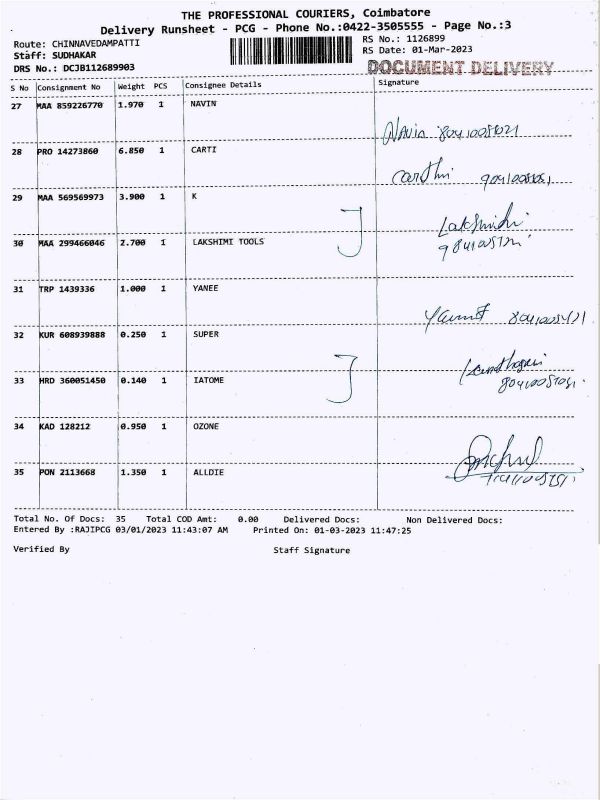 THE PROFESSIONAL COURIERS, Coimbatore
Delivery Runsheet - PCG - Phone No.:0422-3505555 - Page No.:3
Route: CHINNAVEDAMPATTI
RS No.: 1126899
Staff: SUDHAKAR
RS Date: 01-Mar-2023
DRS No.: DCJB112689903
DOCUMENT DELIVERY
S No Consignment No Weight PCS Consignee Details Signature
27 MAA 859226770 1.970 1 NAVIN
Navin
28 PRO 14273860 6.850 1 CARTI
Carthi
29 MAA 569569973 3.900 1 K
Lakshmidhi
30 MAA 299466046 2.700 1 LAKSHIMI TOOLS
31 TRP 1439336 1.000 1 YANEE
32 KUR 608939888 0.250 1 SUPER
33 HRD 360051450 0.140 1 IATOME
34 KAD 128212 0.950 1 OZONE
35 PON 2113668 1.350 1 ALLDIE
Total No. Of Docs: 35 Total COD Amt: 0.00 Delivered Docs: Non Delivered Docs:
Entered By :RAJIPCG 03/01/2023 11:43:07 AM Printed On: 01-03-2023 11:47:25
Verified By Staff Signature